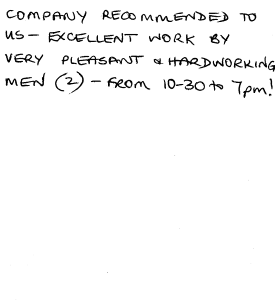 COMPANY RECOMMENDED TO
US - EXCELLENT WORK BY
VERY PLEASANT & HARDWORKING
MEN (2) - FROM 10-30 to 7pm!